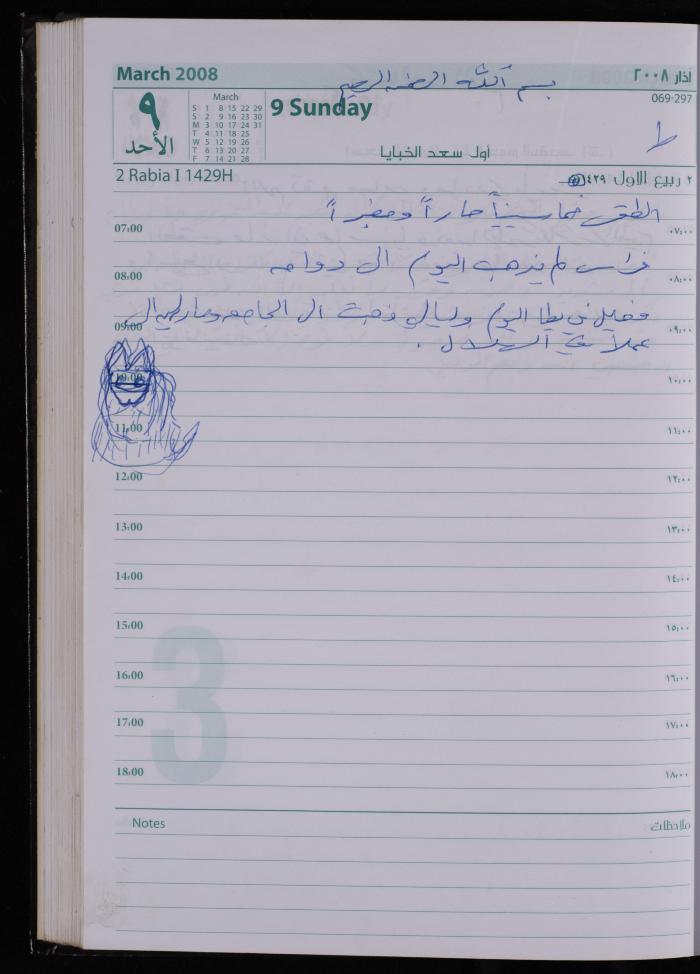 March 2008
بسم الله الرحمن الرحيم
اذار ٢٠٠٨
069-297
٩
الأحد
March
S 1 8 15 22 29
S 2 9 16 23 30
M 3 10 17 24 31
T 4 11 18 25
W 5 12 19 26
T 6 13 20 27
F 7 14 21 28
9 Sunday
أول سعد الخبايا
2 Rabia I 1429H
٢ ربيع الاول ١٤٢٩هـ
الطقس خماسينياً حاراً ومغبراً
07:00 ٠٧:٠٠
فراس لم يذهب اليوم الى دوامه
08:00 ٠٨:٠٠
اليوم وليالي ذهبت الى الجامعه
09:00 ٠٩:٠٠
عملاً في
10:00 ١٠:٠٠
11:00 ١١:٠٠
12:00 ١٢:٠٠
13:00 ١٣:٠٠
14:00 ١٤:٠٠
15:00 ١٥:٠٠
16:00 ١٦:٠٠
17:00 ١٧:٠٠
18:00 ١٨:٠٠
3
Notes ملاحظات